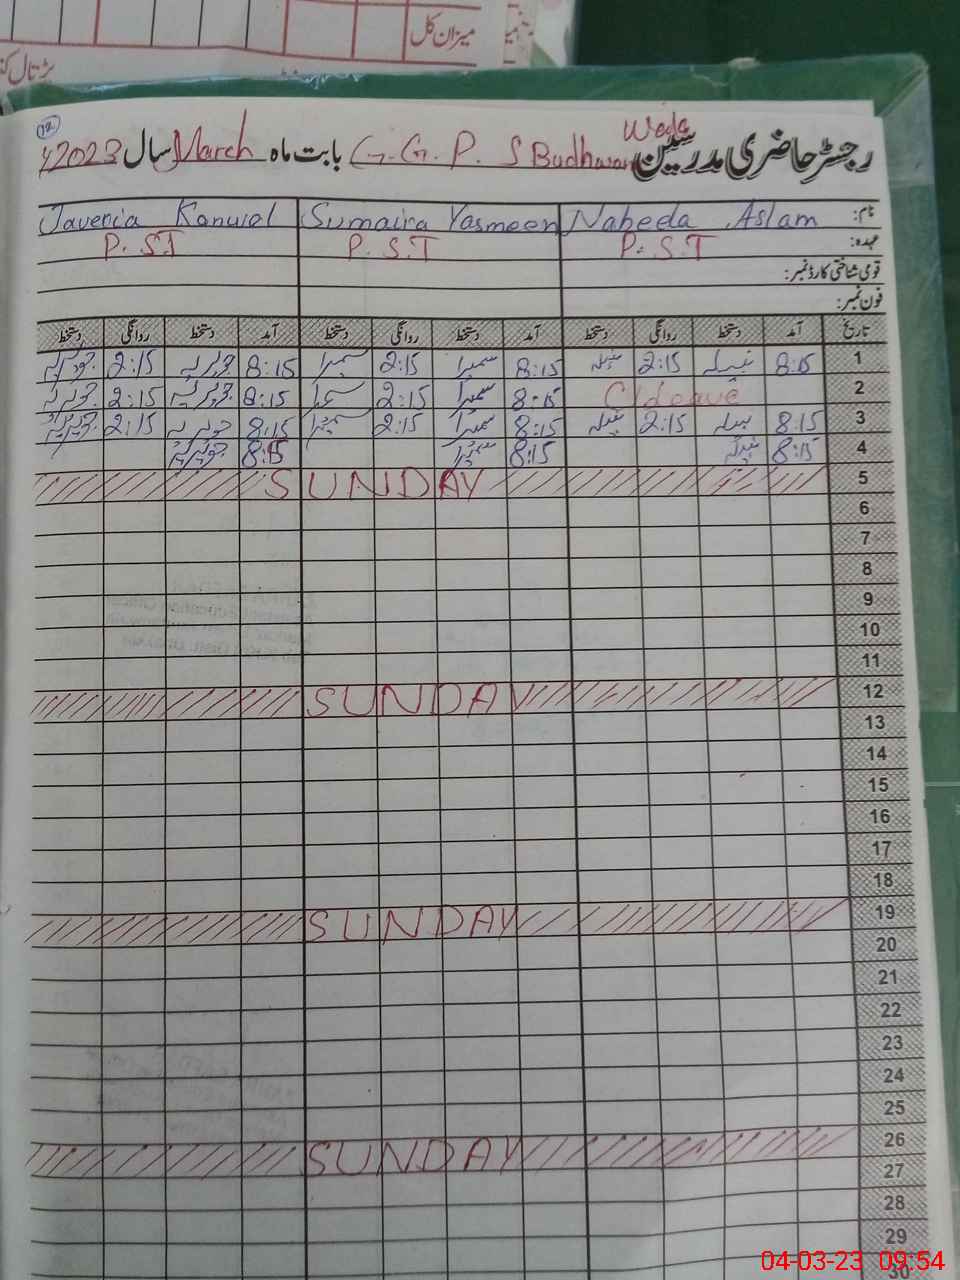 میزان کل
پڑتال
72
رجسٹر حاضری مدرسین G.G.P.S Budhwan Wada بابت ماہ March سال 2023
نام: Nabeela Aslam Sumaira Yasmeen Javeria Kanwal
عہدہ: P.S.T P.S.T P.S.T
قومی شناختی کارڈ نمبر:
فون نمبر:
تاریخ آمد دستخط روانگی دستخط آمد دستخط روانگی دستخط آمد دستخط روانگی دستخط
1 8:15 نبیلہ 2:15 نبیلہ 8:15 سمیرا 2:15 سمیرا 8:15 جویریہ 2:15 جویریہ
2 C/Leave 8:15 سمیرا 2:15 سمیرا 8:15 جویریہ 2:15 جویریہ
3 8:15 نبیلہ 2:15 نبیلہ 8:15 سمیرا 2:15 سمیرا 8:15 جویریہ 2:15 جویریہ
4 8:15 نبیلہ 8:15 سمیرا 8:15 جویریہ
5 SUNDAY
6
7
8
9
10
11
12 SUNDAY
13
14
15
16
17
18
19 SUNDAY
20
21
22
23
24
25
26 SUNDAY
27
28
29
30
04-03-23 09:54